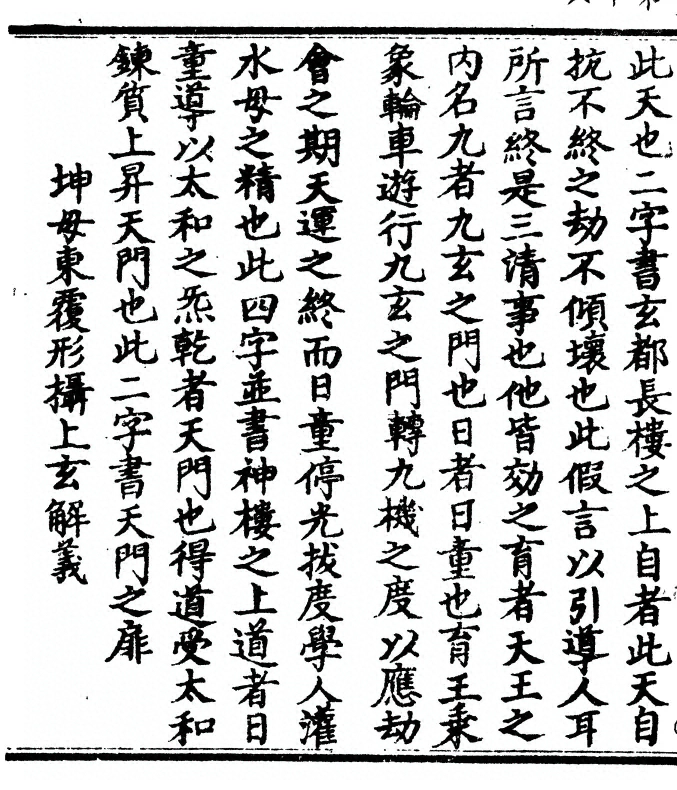 此天也二字書玄都長樓之上自者此天自
抗不終之劫不傾壞也此假言以引導人耳
所言終是三清事也他皆効之育者天王之
内名九者九玄之門也日者日童也育王乗
象輪車遊行九玄之門轉九機之度以應劫
會之期天運之終而日童停光拔度學人灌
水母之精也此四字並書神樓之上道者日
童導以太和之炁乾者天門也得道受太和
鍊質上昇天門也此二字書天門之扉
坤母東覆形攝上玄解義